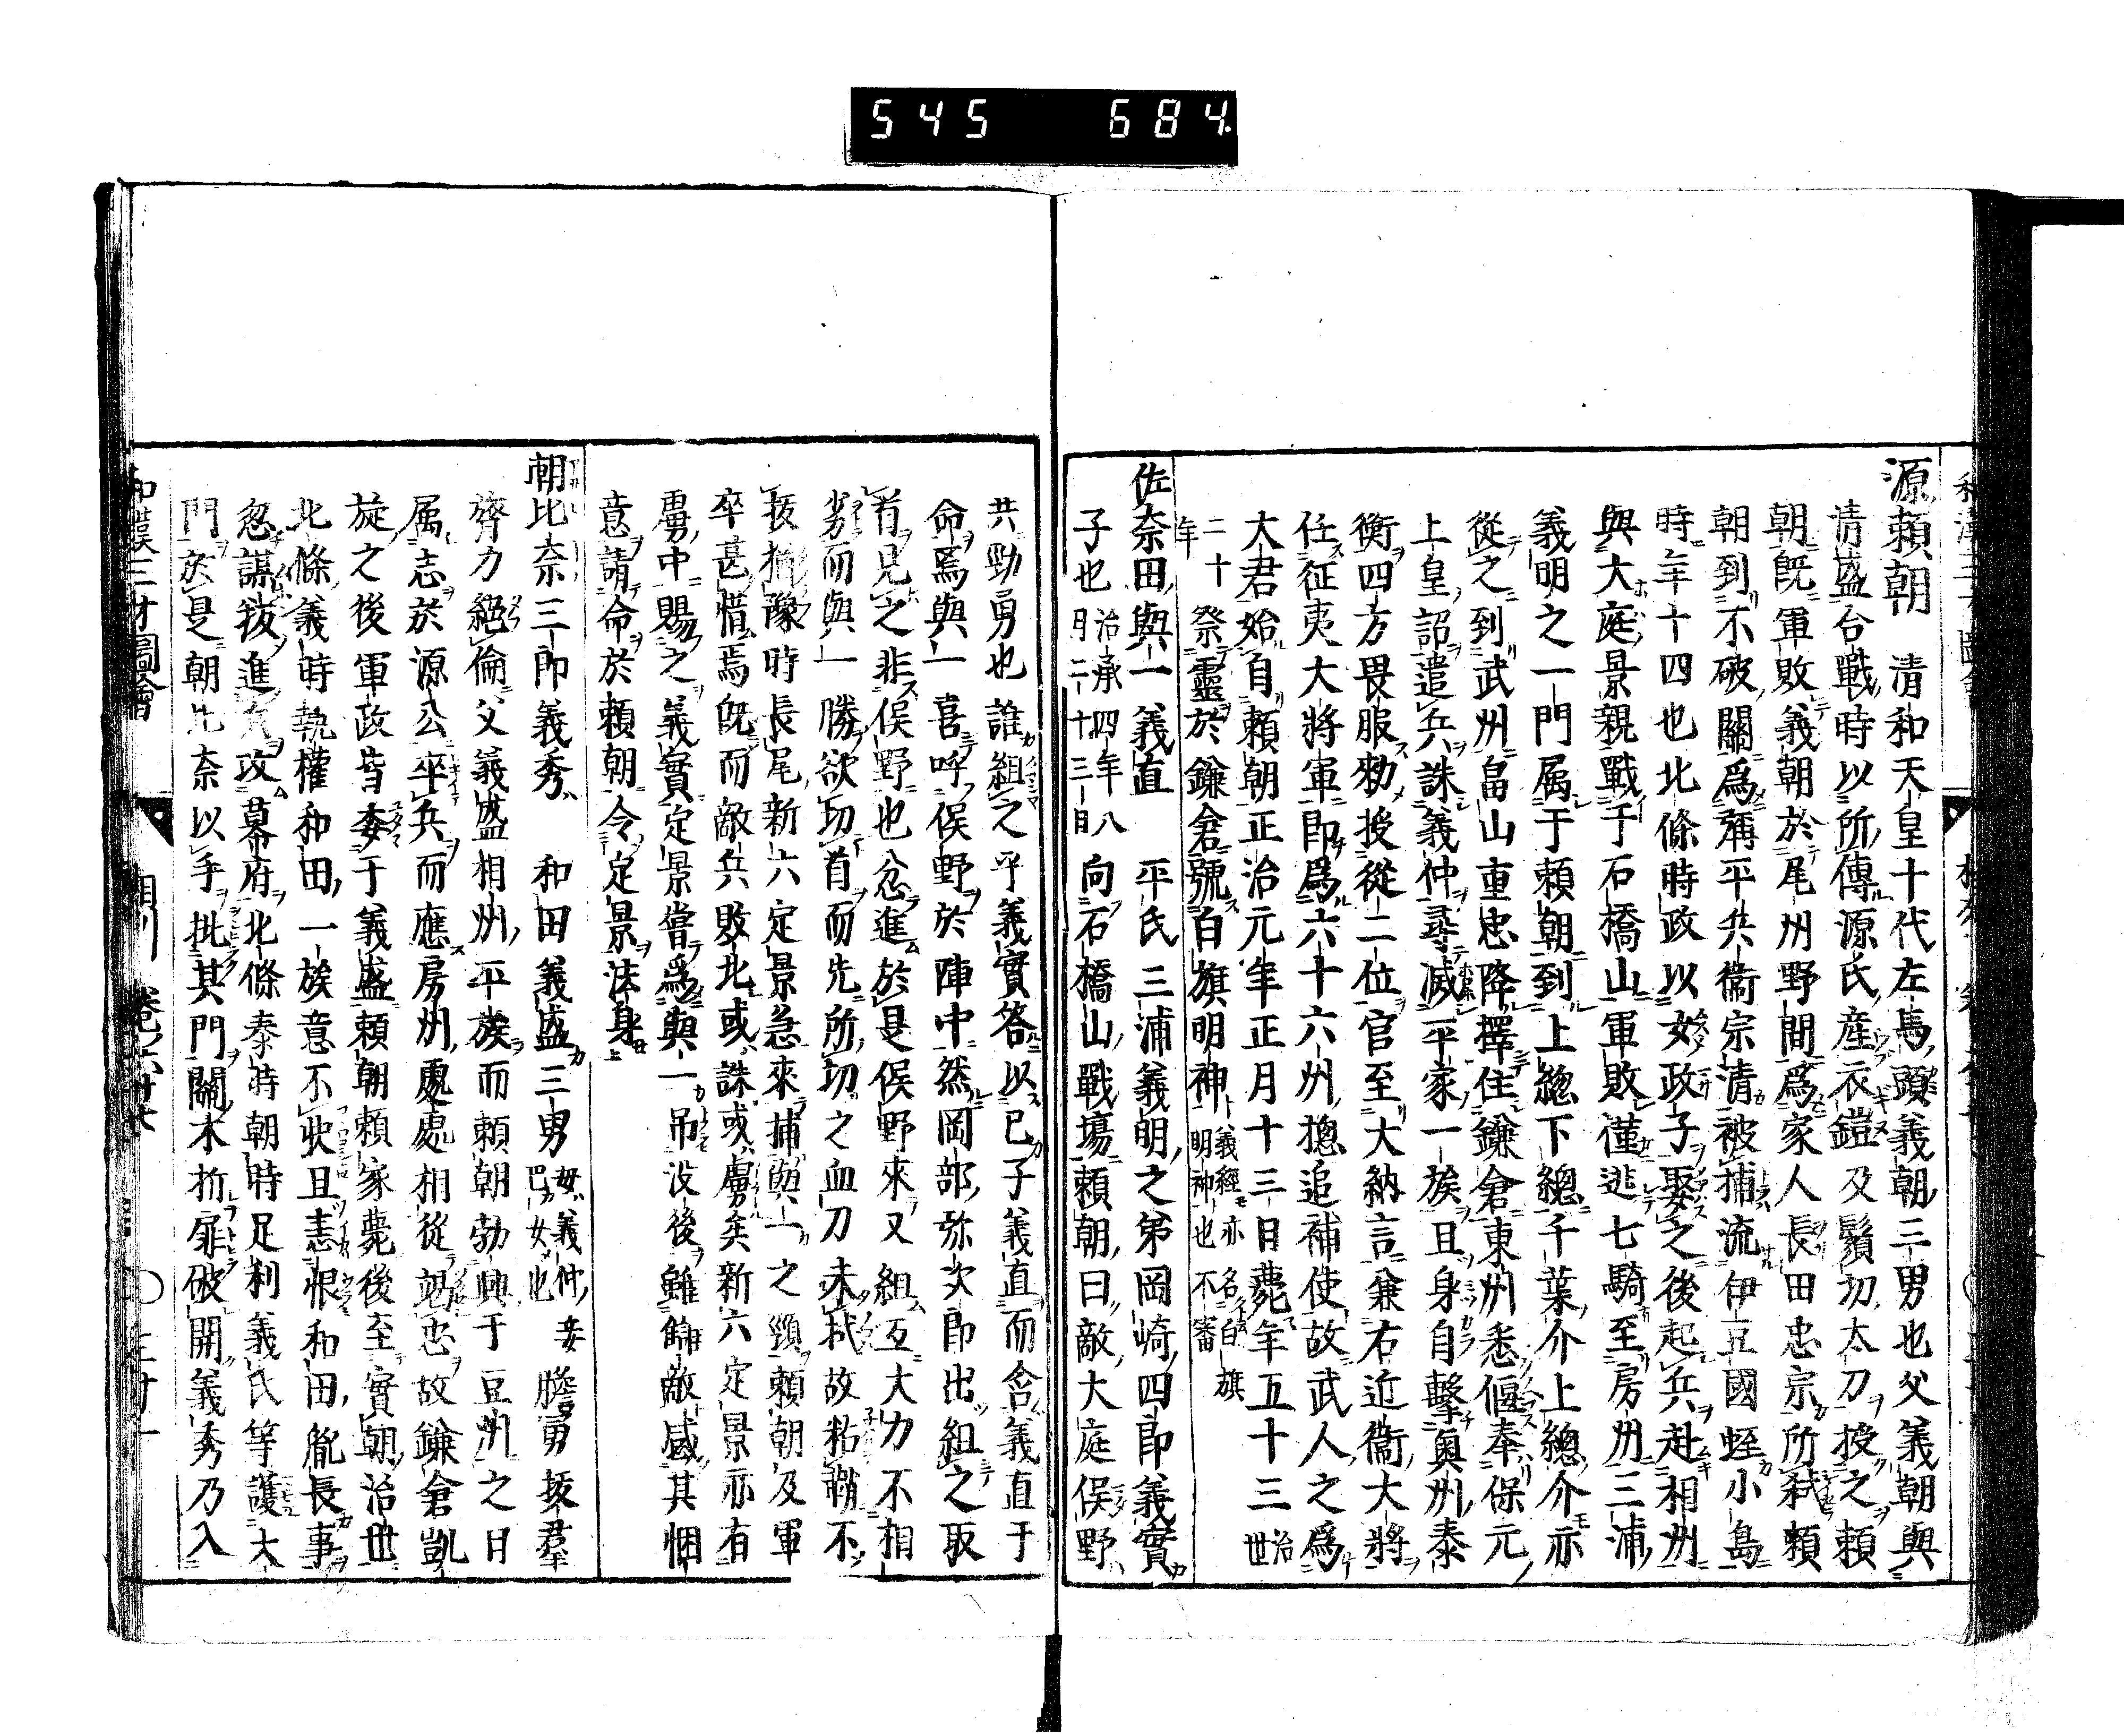 545 684
源頼朝 清和天皇十代左馬頭義朝三男也父義朝與
清盛合戰時以所傳源氏産衣鎧及鬚切太刀授之頼
朝既軍敗義朝於尾州野間爲家人長田忠宗所弑頼
朝到不破關爲彌平兵衞宗清被捕流伊豆國蛭小島
時年十四也北條時政以女政子娶之後起兵赴相州
與大庭景親戰于石橋山軍敗僅逃七騎至房州三浦
義明之一門属于頼朝到上總下總千葉介上總介亦
從之到武州畠山重忠降擇住鎌倉東州悉偃奉保元
上皇詔遣兵誅義仲尋滅平家一族且身自擊奥州泰
衡四方畏服勅授從二位官至大納言兼右近衞大將
任征夷大將軍即爲六十六州摠追補使故武人之爲
大君始自頼朝正治元年正月十三日薨年五十三 治世
二十年 祭靈於鎌倉號白旗明神 義經亦名白旗明神也不審
佐奈田與一義直 平氏三浦義明之弟岡崎四郎義實
子也 治承四年八月二十三日 向石橋山戰塲頼朝曰敵大庭俣野
共勁勇也誰組之乎義實答以已子義直而含義直于
命焉與一喜呼俣野於陣中然岡部弥次郎出組之取
首見之非俣野也忿進於是俣野來又組互大力不相
劣而與一勝欲切首而先所切之血刀未拭故粘鞘不
拔猶豫時長尾新六定景急來捕與一之頸頼朝及軍
卒甚惜焉既而敵兵敗北或誅或虜矣新六定景亦有
虜中賜之義實定景嘗爲與一吊没後雖餘敵感其悃
意請命於頼朝令定景法身
朝比奈三郎義秀 和田義盛三男 母義仲妾巴女也 膽勇拔羣
膂力絕倫父義盛相州平族而頼朝勃興于豆州之日
属志於源公卒兵而應房州處處相從竭忠故鎌倉凱
旋之後軍政皆委于義盛頼朝頼家薨後至實朝治世
北條義時執權和田一族意不快且恚恨和田胤長事
忽謀叛進攻幕府北條泰時朝時足利義氏等護大
門於是朝比奈以手批其門關木折扉破開義秀乃入
和漢三才圖會 相州 卷之六十七